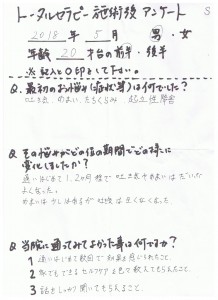 トータルセラピー施術後 アンケート
S
2018年 5月 男・女
年齢 20才台の前半・後半
※ 記入と○印をして下さい。
Q. 最初のお悩み(症状等)は何でした?
吐き気、めまい、立ちくらみ 起立性障害
Q. その悩みがどの位の期間でどの様に
変化しましたか?
通いはじめて 1、2ヶ月程で 吐き気やめまいは だいぶ
よくなった。
めまいは少しはあるが 吐気は全くなくなった。
Q. 当院に通ってみてよかった事は何ですか?
1 通いはじめて数回で効果を感じられたこと。
2 家でもできるセルフケアを色々教えてもらえたこと。
3 話をしっかり聞いてもらえること。